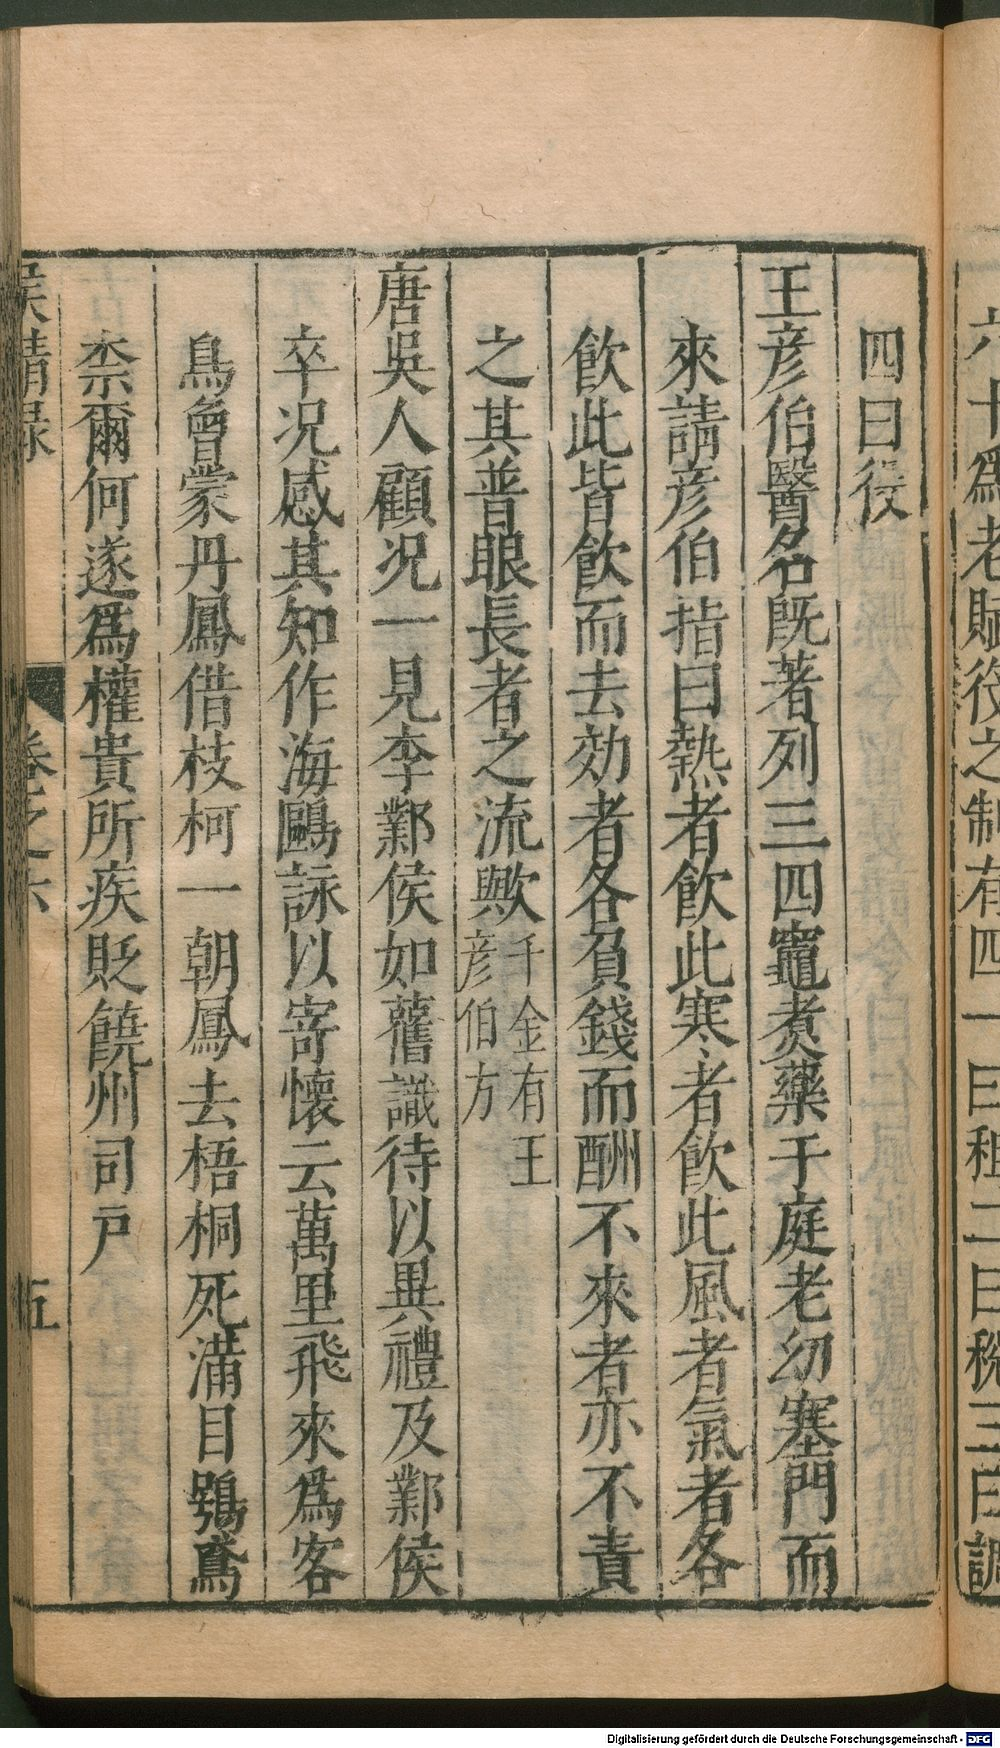 六十爲老賦役之制有四一曰租二曰稅三曰調
四曰役
王彦伯醫名既著列三四竈煮藥于庭老幼塞門而
來請彦伯指曰熱者飲此寒者飲此風者氣者各
飲此皆飲而去効者各負錢而酬不來者亦不責
之其普眼長者之流歟千金有王
彦伯方
唐吳人顧况一見李鄴侯如舊識待以異禮及鄴侯
卒况感其知作海鷗詠以寄懷云萬里飛來爲客
鳥曾蒙丹鳳借枝柯一朝鳳去梧桐死滿目鴟鳶
柰爾何遂爲權貴所疾貶饒州司戸
侯鯖錄 卷之六 五
Digitalisierung gefördert durch die Deutsche Forschungsgemeinschaft - DFG